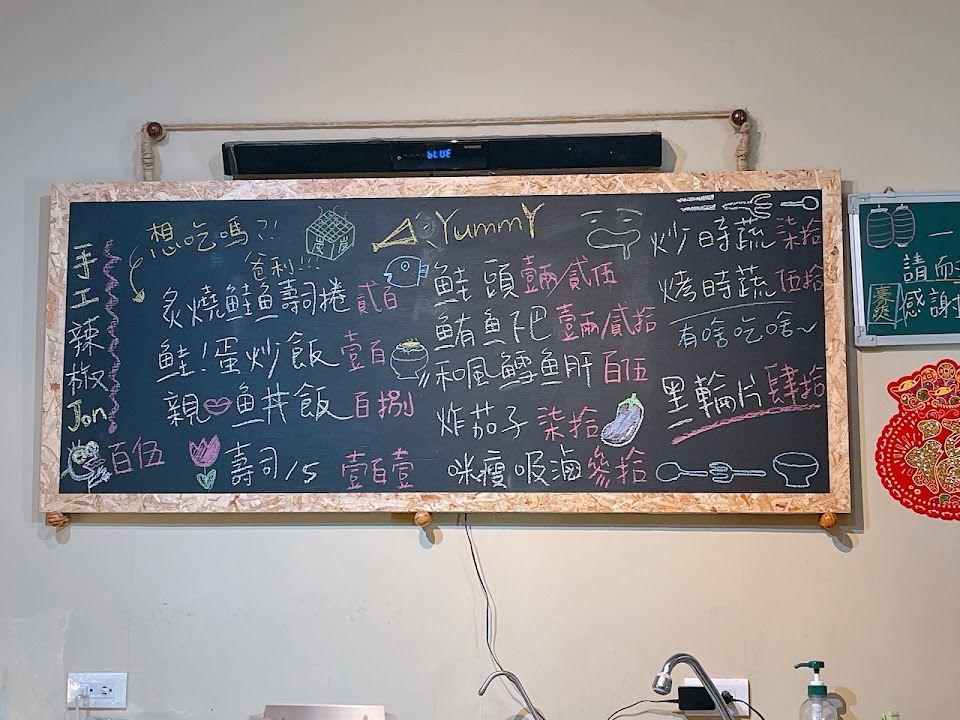 bLUE
想吃嗎?!
爸利!!!
手工辣椒Jon
百伍
炙燒鮭魚壽司捲 貳百
鮭!蛋炒飯 壹百
親 魚丼飯 百捌
壽司/5 壹百壹
YummY
鮭頭 壹兩貳伍
鮪魚下巴 壹兩/貳拾
和風鱈魚肝 百伍
炸茄子 柒拾
咪瘦吸滷 參拾
炒時蔬 柒拾
烤時蔬 伍拾
有啥吃啥~
黑輪片 肆拾
一
請而
感謝